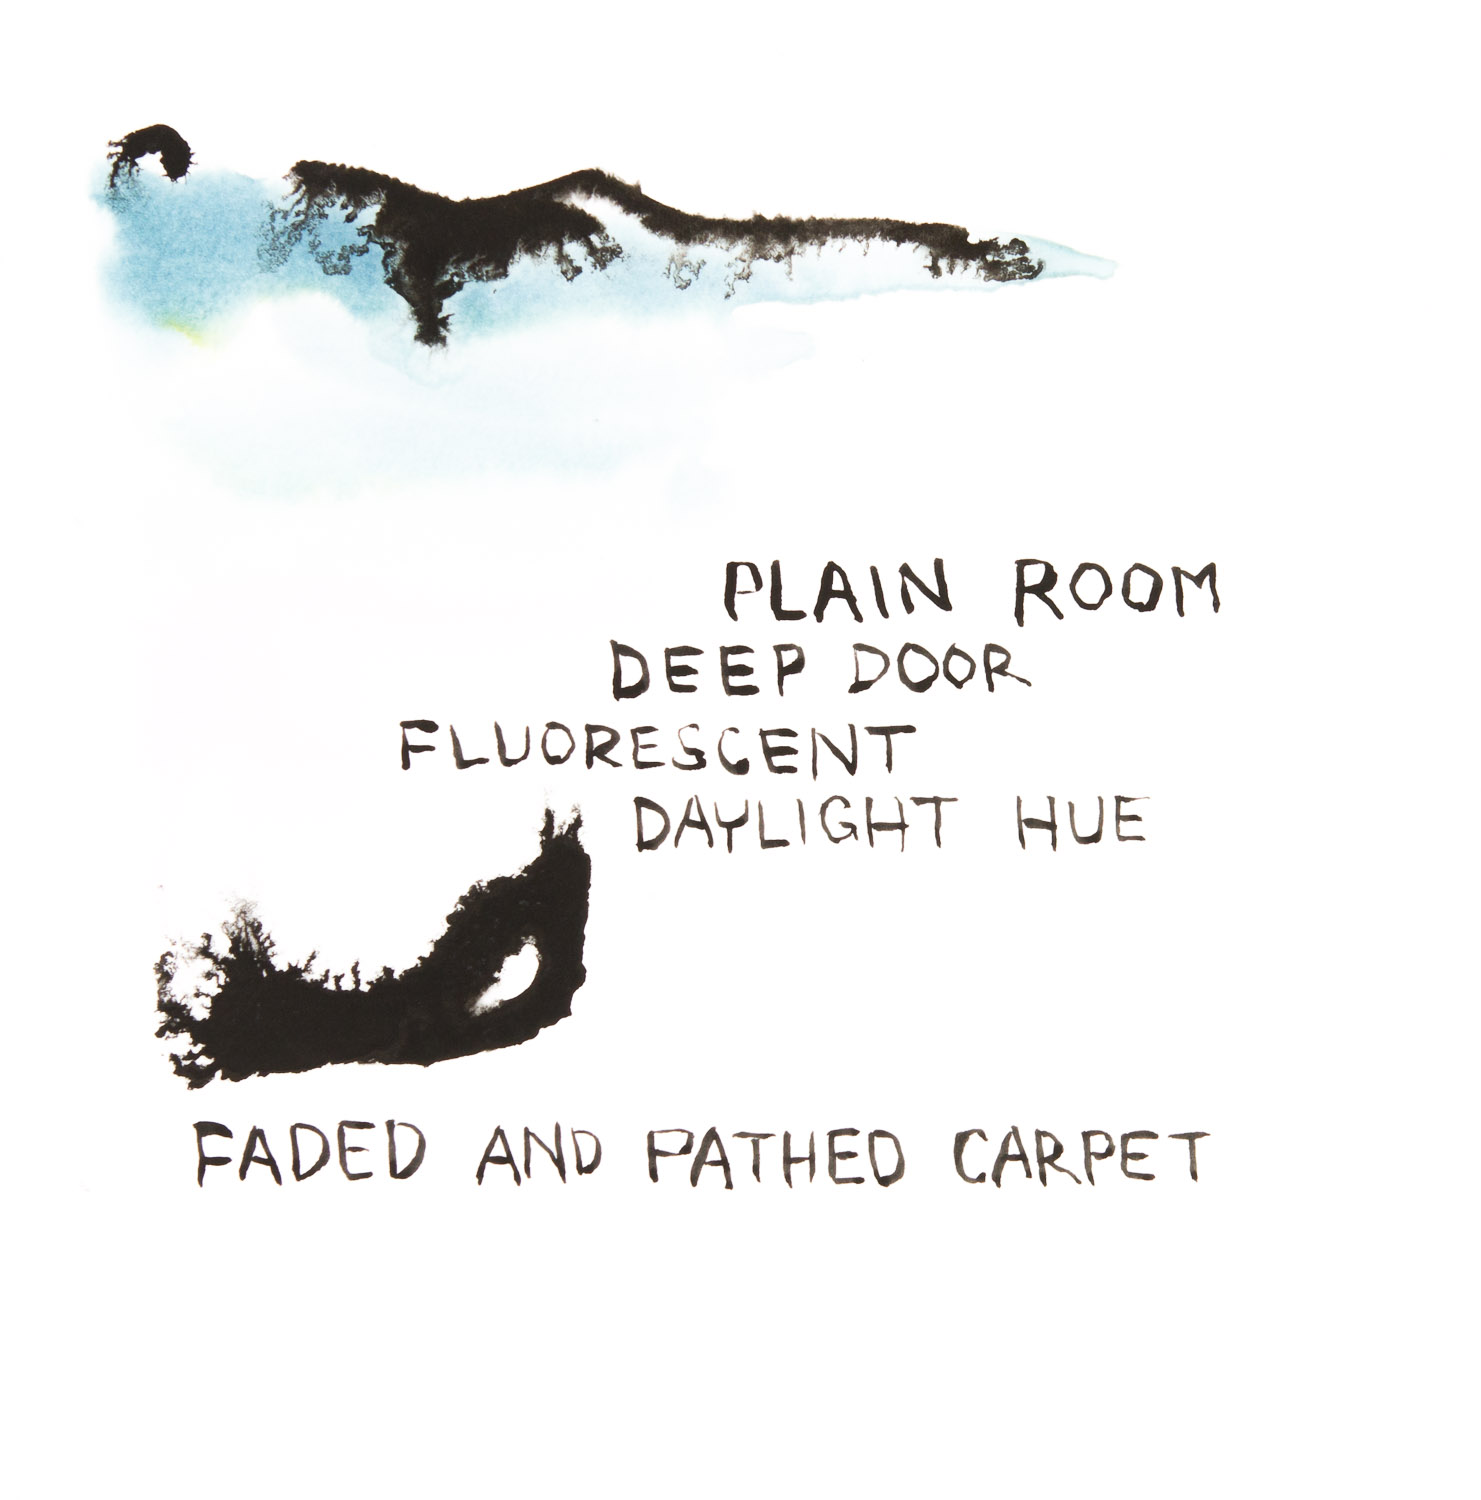 PLAIN ROOM
DEEP DOOR
FLUORESCENT
DAYLIGHT HUE
FADED AND PATHED CARPET